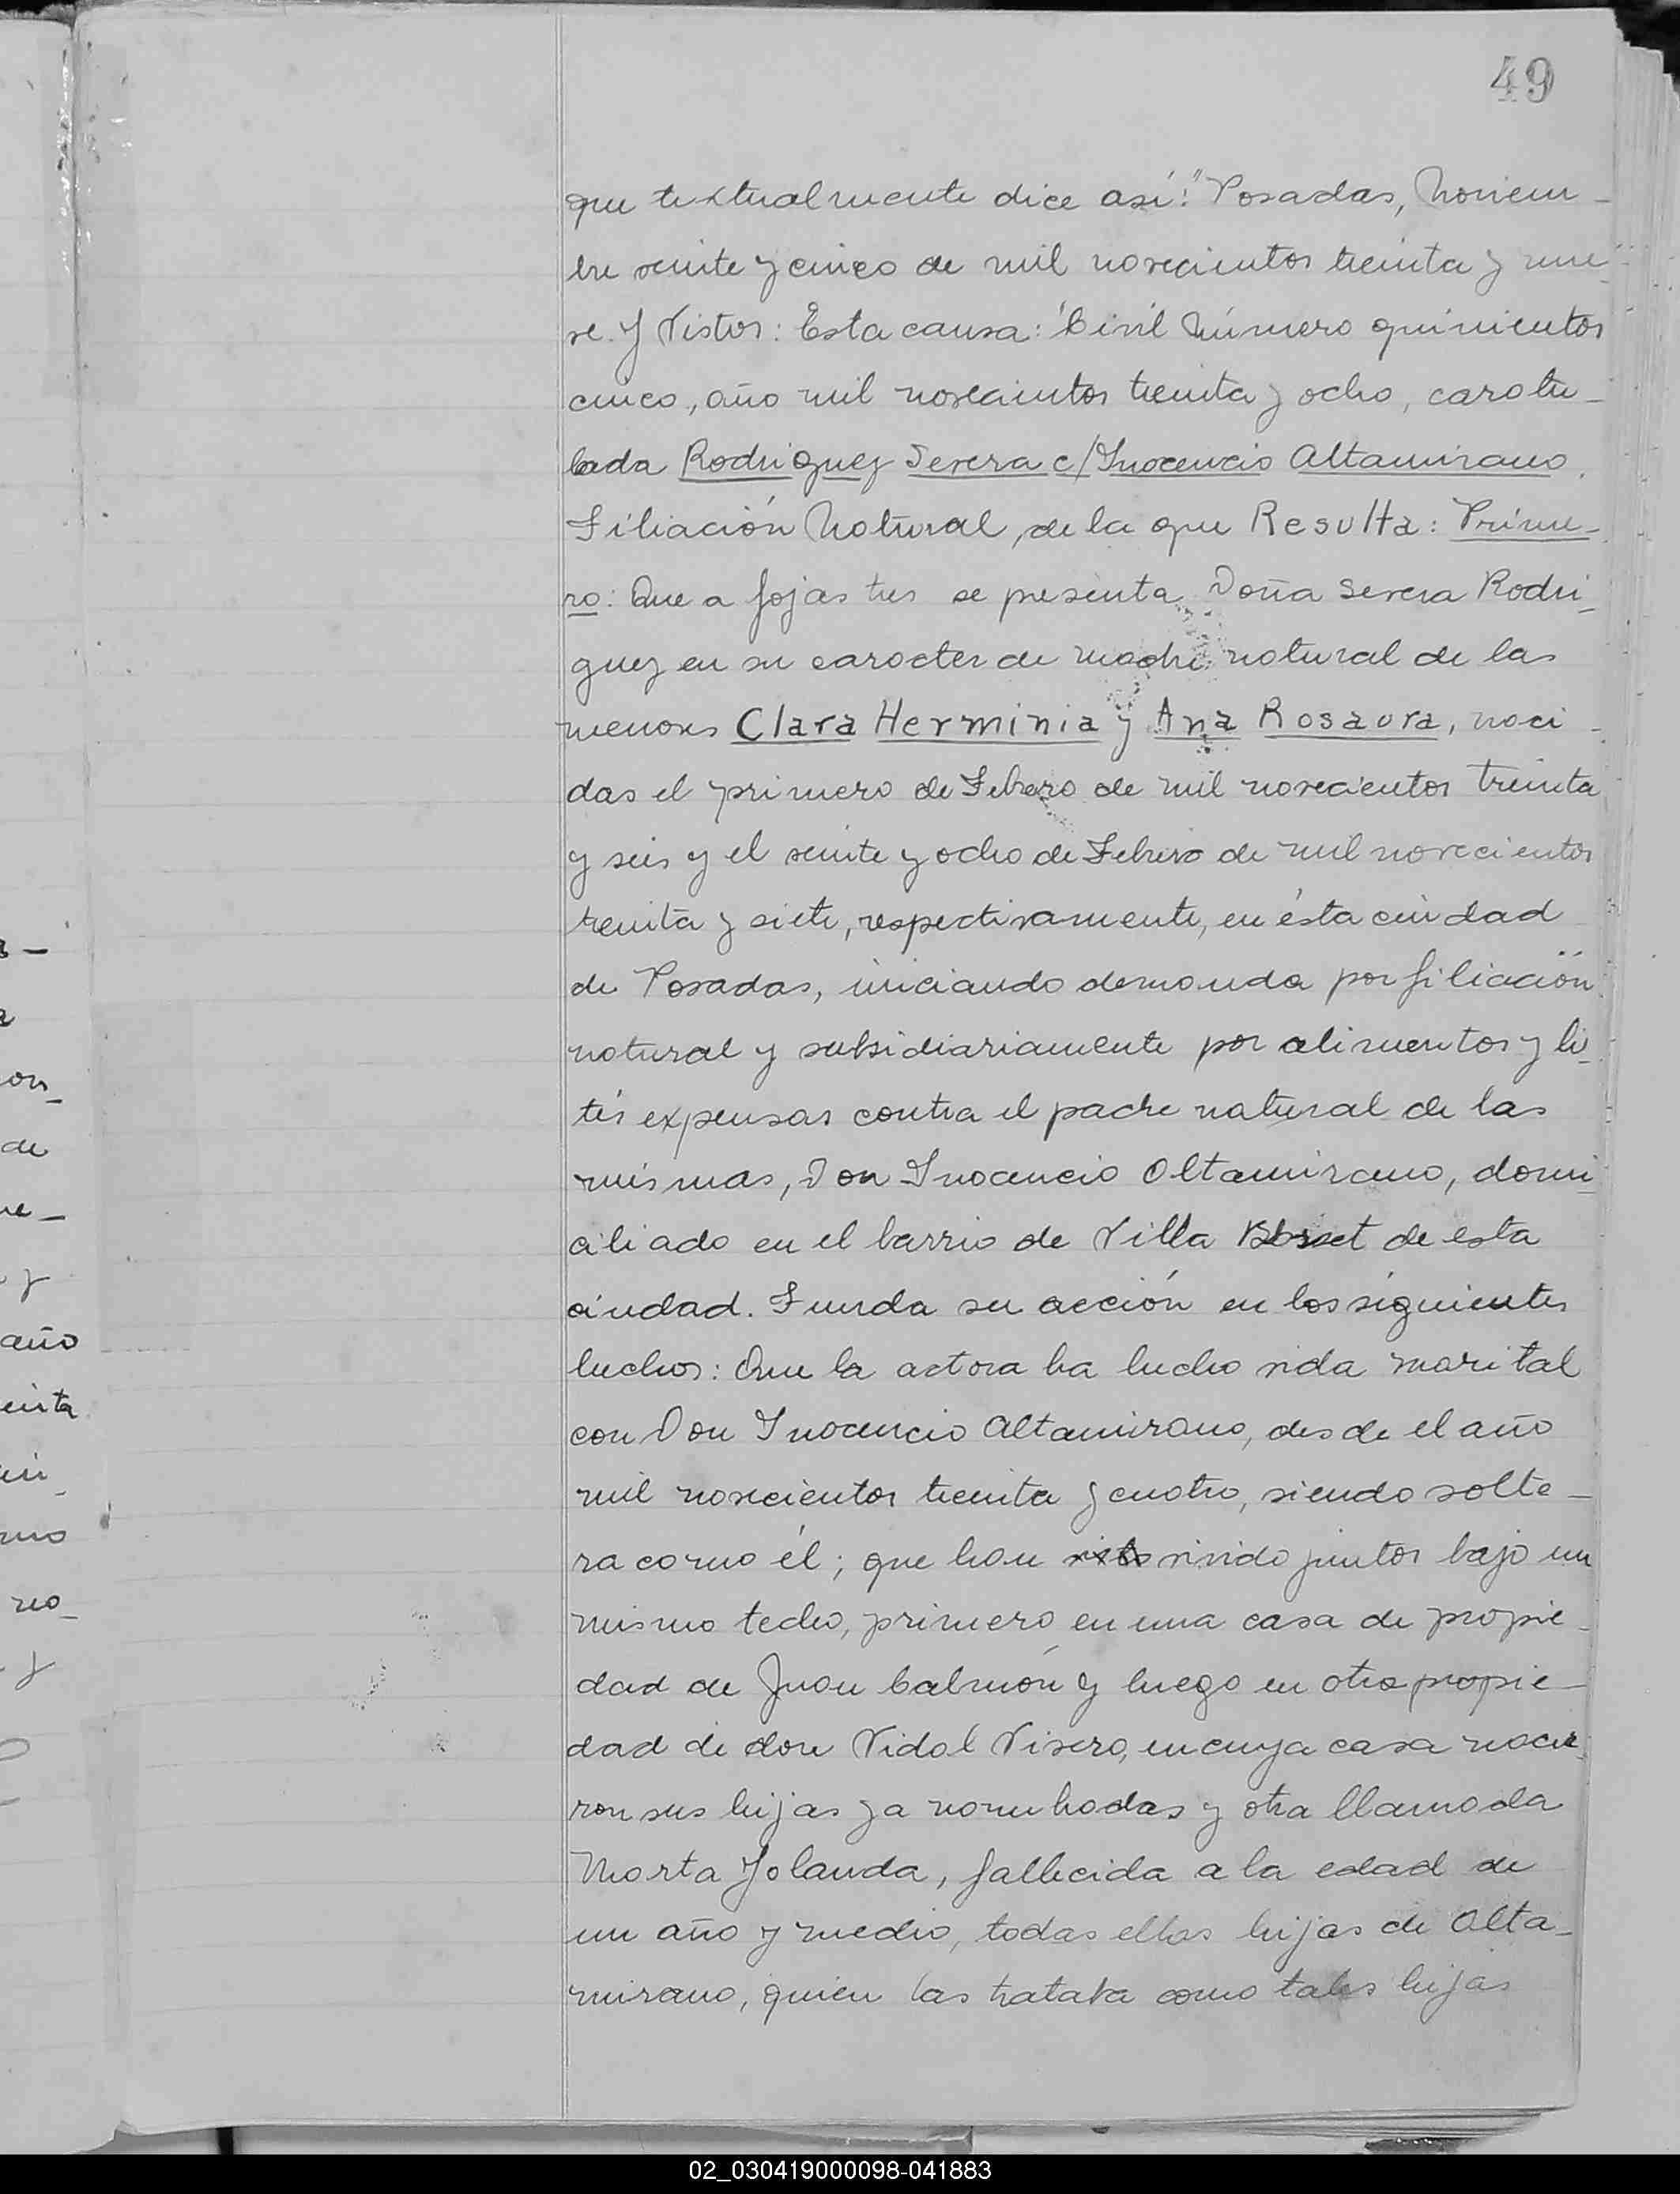 49
que textualmente dice así: "Posadas, Noviem-
bre veinte y cinco de mil novecientos treinta y nue-
ve. Y Vistos: Esta causa: Civil Número quinientos
cinco, año mil novecientos treinta y ocho, caratu-
lada Rodriguez Severa c/ Inocencio Altamirano.
Filiación Natural, de la que Resulta: Prime-
ro: Que a fojas tres se presenta Doña Severa Rodri-
guez en su caracter de madre natural de las
menores Clara Herminia y Ana Rosaura, naci-
das el primero de Febrero de mil novecientos treinta
y seis y el veinte y ocho de Febrero de mil novecientos
treinta y siete, respectivamente, en ésta ciudad
de Posadas, iniciando demanda por filiación
natural y subsidiariamente por alimentos y li-
tis expensas contra el padre natural de las
mismas, Don Inocencio Altamirano, domi-
ciliado en el barrio de Villa de esta
ciudad. Funda su acción en los siguientes
hechos: Que la actora ha hecho vida marital
con Don Inocencio Altamirano, desde el año
mil novecientos treinta y cuatro, siendo solte-
ra como él; que han vivido juntos bajo un
mismo techo, primero en una casa de propie-
dad de Juan Calmón y luego en otra propie-
dad de don Vidal Visero, en cuya casa nacie-
ron sus hijas ya nombradas y otra llamada
Marta Yolanda, fallecida a la edad de
un año y medio, todas ellas hijas de Alta-
mirano, quien las trataba como tales hijas
on-
de
año
02_030419000098-041883